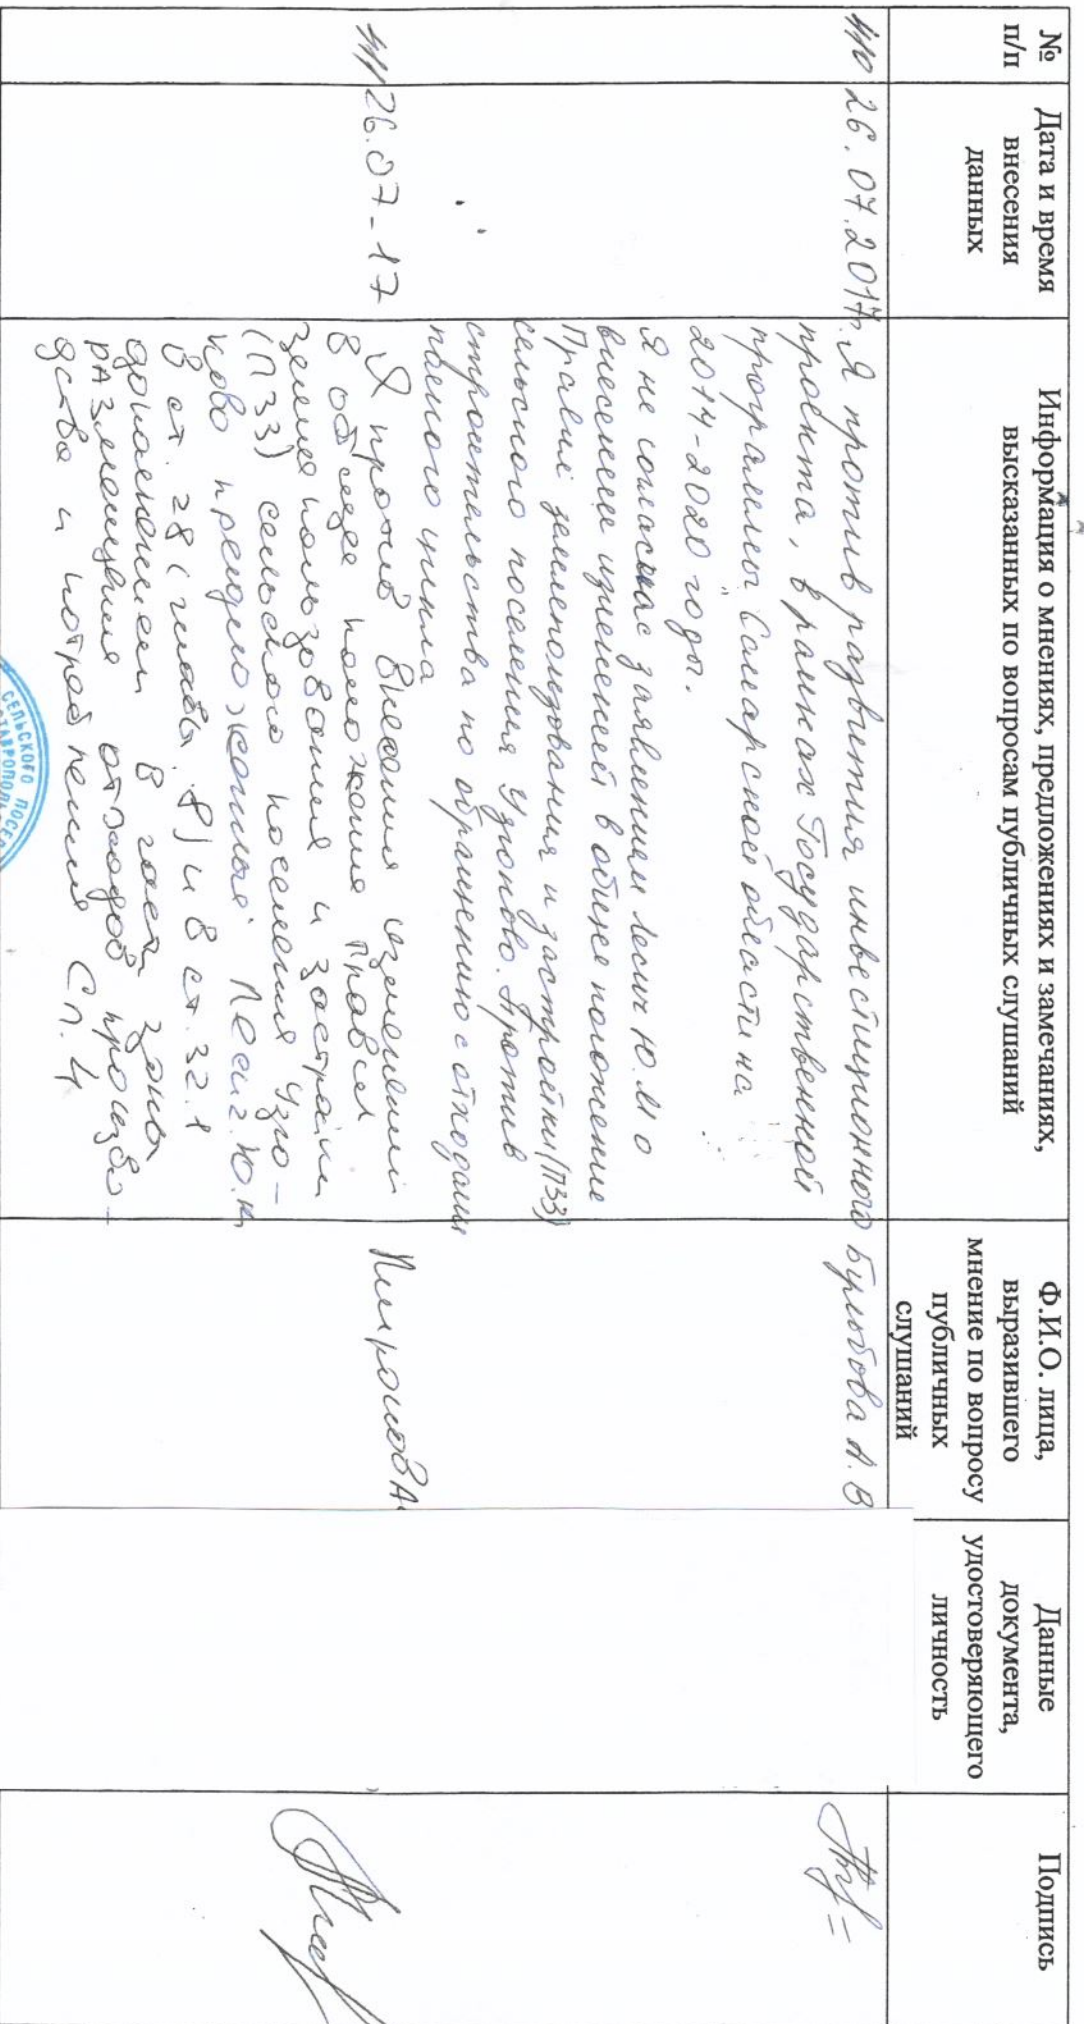 №
п/п
Дата и время
внесения
данных
Информация о мнениях, предложениях и замечаниях,
высказанных по вопросам публичных слушаний
Ф.И.О. лица,
выразившего
мнение по вопросу
публичных
слушаний
Данные
документа,
удостоверяющего
личность
Подпись
110 26.07.2017г. Я против развития инвестиционного Бульбова А.В
проекта, в рамках Государственной
программы Самарской области на
2014-2020 годы.
Я не согласна с заявлением Лесич Ю.М о
внесении изменений в общее положение
Правил землепользования и застройки (ПЗЗ)
сельского поселения Узюково. Против
строительства по обращению с отходами
полного цикла
111 26.07-17 Я против внесения изменений
В общее положение правил
землепользования и застройки
(ПЗЗ) сельского поселения Узю-
ково предложенные
В ст. 28 (глава 8) и в ст. 32.1
дополнением в части зоны
размещения отходов произво-
дства и потребления СП. 4
СЕЛЬСКОГО